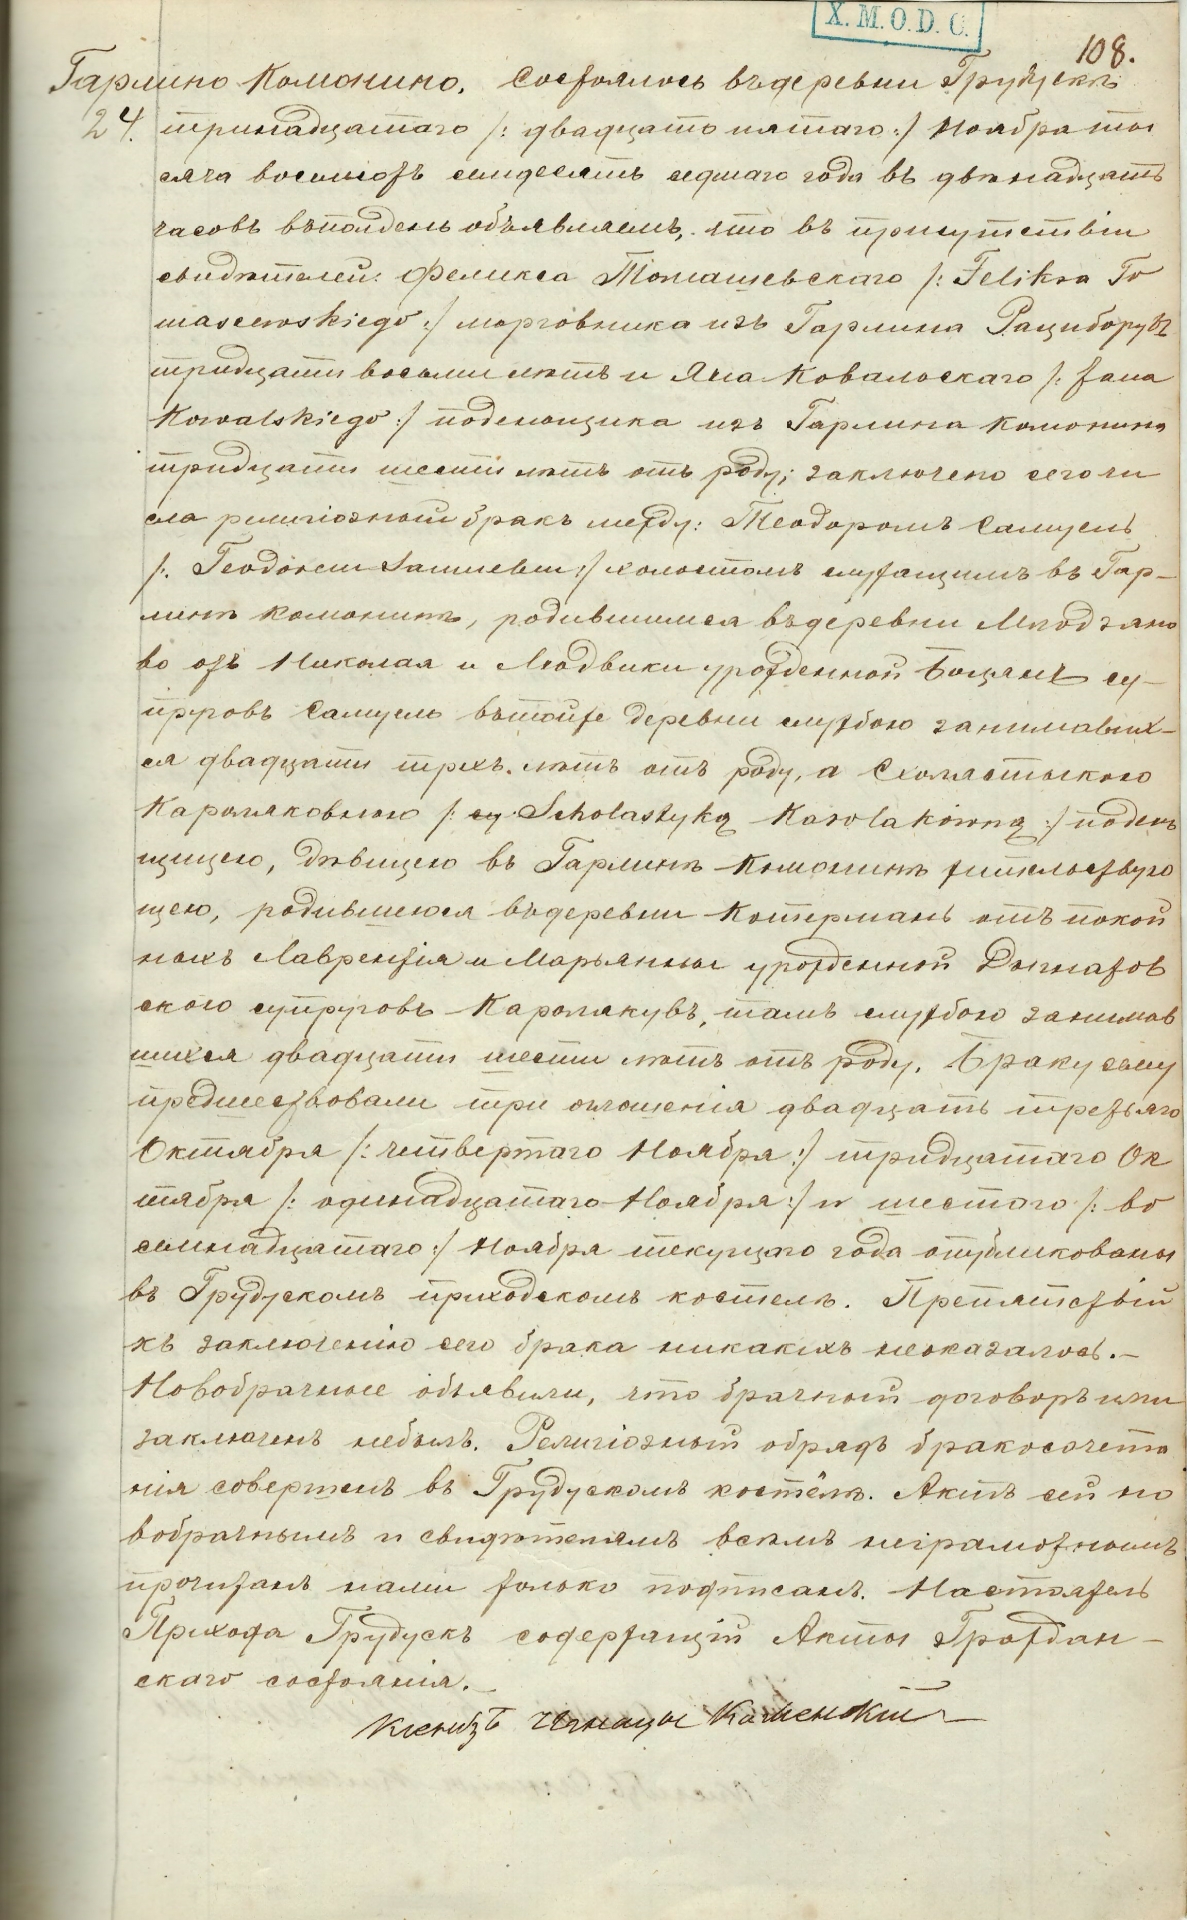 X.M.O.D.C.
108.
Гарлино Комонино. Состоялось въ деревни Грудускъ
24. тринадцатаго /: двадцать пятаго :/ Ноября ты
сяча восемсотъ семдесятъ седмаго года въ двѣнадцать
часовъ въ полдень объявляемъ, что въ присутствіи
свидѣтелей: Феликса Томашевскаго /: Feliksa To
maszewskiego :/ морговника изъ Гарлина Рациборувъ
тридцати восьми лѣтъ и Яна Ковальскаго /: Jana
Kowalskiego :/ поденьщика изъ Гарлина Комонина
тридцати шести лѣтъ отъ роду; заключено сего чи
сла религіозный бракъ между: Теодоромъ Самуель
/: Teodorem Samuelem :/ холостымъ служащимъ въ Гар-
линѣ Комонинѣ, родившимся въ деревни Млодзяно
во отъ Николая и Людвики урожденной су-
пруговъ Самуель въ тойже деревни службою занимавших-
ся двадцати трехъ лѣтъ отъ роду, а Схоластыкою
Кароляковною /: Scholastyką Karolakówną :/ поден
щицею, дѣвицею въ Гарлинѣ Комонинѣ жительствую
щею, родившеюся въ деревни Котермань отъ покой
ныхъ Лаврентія и Марьянны урожденной
скою супруговъ Каролякувъ, тамъ службою занимав
шихся двадцати шести лѣтъ отъ роду. Браку сему
предшествовали три оглошенія двадцать третьяго
Октября /: четвертаго Ноября :/ тридцатаго Ок
тября /: одинадцатаго Ноября :/ и шестаго /: во
семнадцатаго :/ Ноября текущаго года опубликованы
въ Грудускомъ приходскомъ костелѣ. Препятствій
къ заключенію сего брака никакихъ неоказалось. —
Новобрачные объявили, что брачный договоръ ими
заключенъ небылъ. Религіозный обрядъ бракосочета
нія совершенъ въ Грудускомъ костёлѣ. Актъ сей но
вобрачнымъ и свидѣтелямъ всѣмъ неграмотнымъ
прочитанъ нами только подписанъ. Настоятель
Прихода Грудускъ содержащій Акты Граждан-
скаго состоянія. —
Ксендзъ Игнацы Каменскій